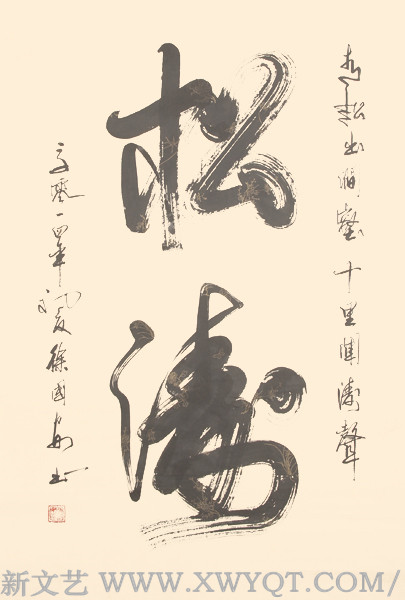 松出澗壑十里聞濤聲
松濤
二零一四年初夏徐國书
新文艺 WWW.XWYQT.COM/